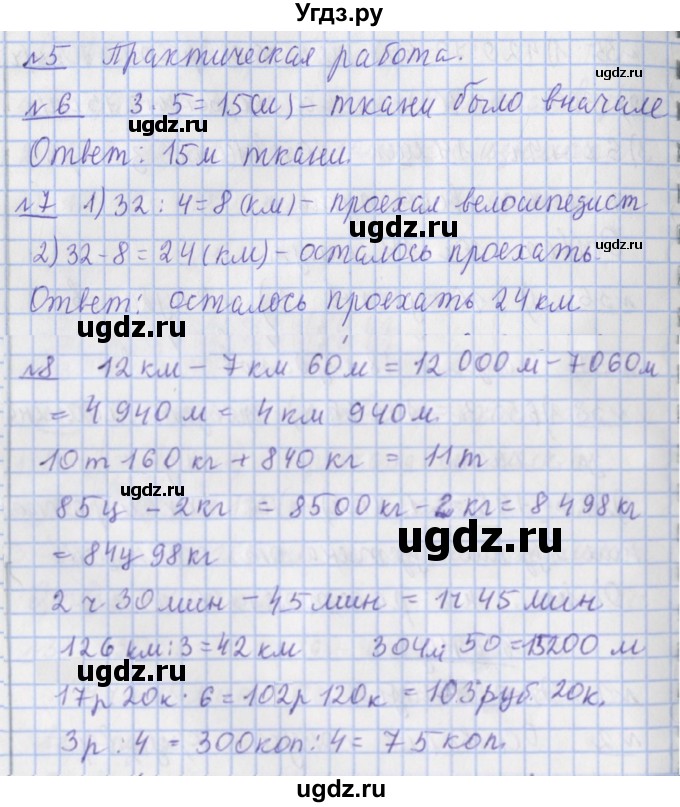 Угдз.ру
№5 Практическая работа.
№6 3·5=15(м) – ткани было вначале
Ответ: 15м ткани.
№7 1) 32 : 4 = 8 (км) – проехал велосипедист
2) 32 - 8 = 24 (км) – осталось проехать.
Ответ: осталось проехать 24 км
№8 12 км – 7 км 60 м = 12 000 м – 7060 м
= 4 940 м = 4 км 940 м.
10 т 160 кг + 840 кг = 11 т
85 ц – 2 кг = 8500 кг – 2 кг = 8498 кг
= 84 ц 98 кг
2 ч 30 мин – 45 мин = 1 ч 45 мин
126 км : 3 = 42 км 304 м 50 = 15200 м
17р 20к · 6 = 102р 120к = 103 руб. 20к.
3р : 4 = 300 коп : 4 = 75 коп.
ugdz.ru
ugdz.ru
ugdz.ru
ugdz.ru
ugdz.ru
ugdz.ru
ugdz.ru
ugdz.ru
ugdz.ru